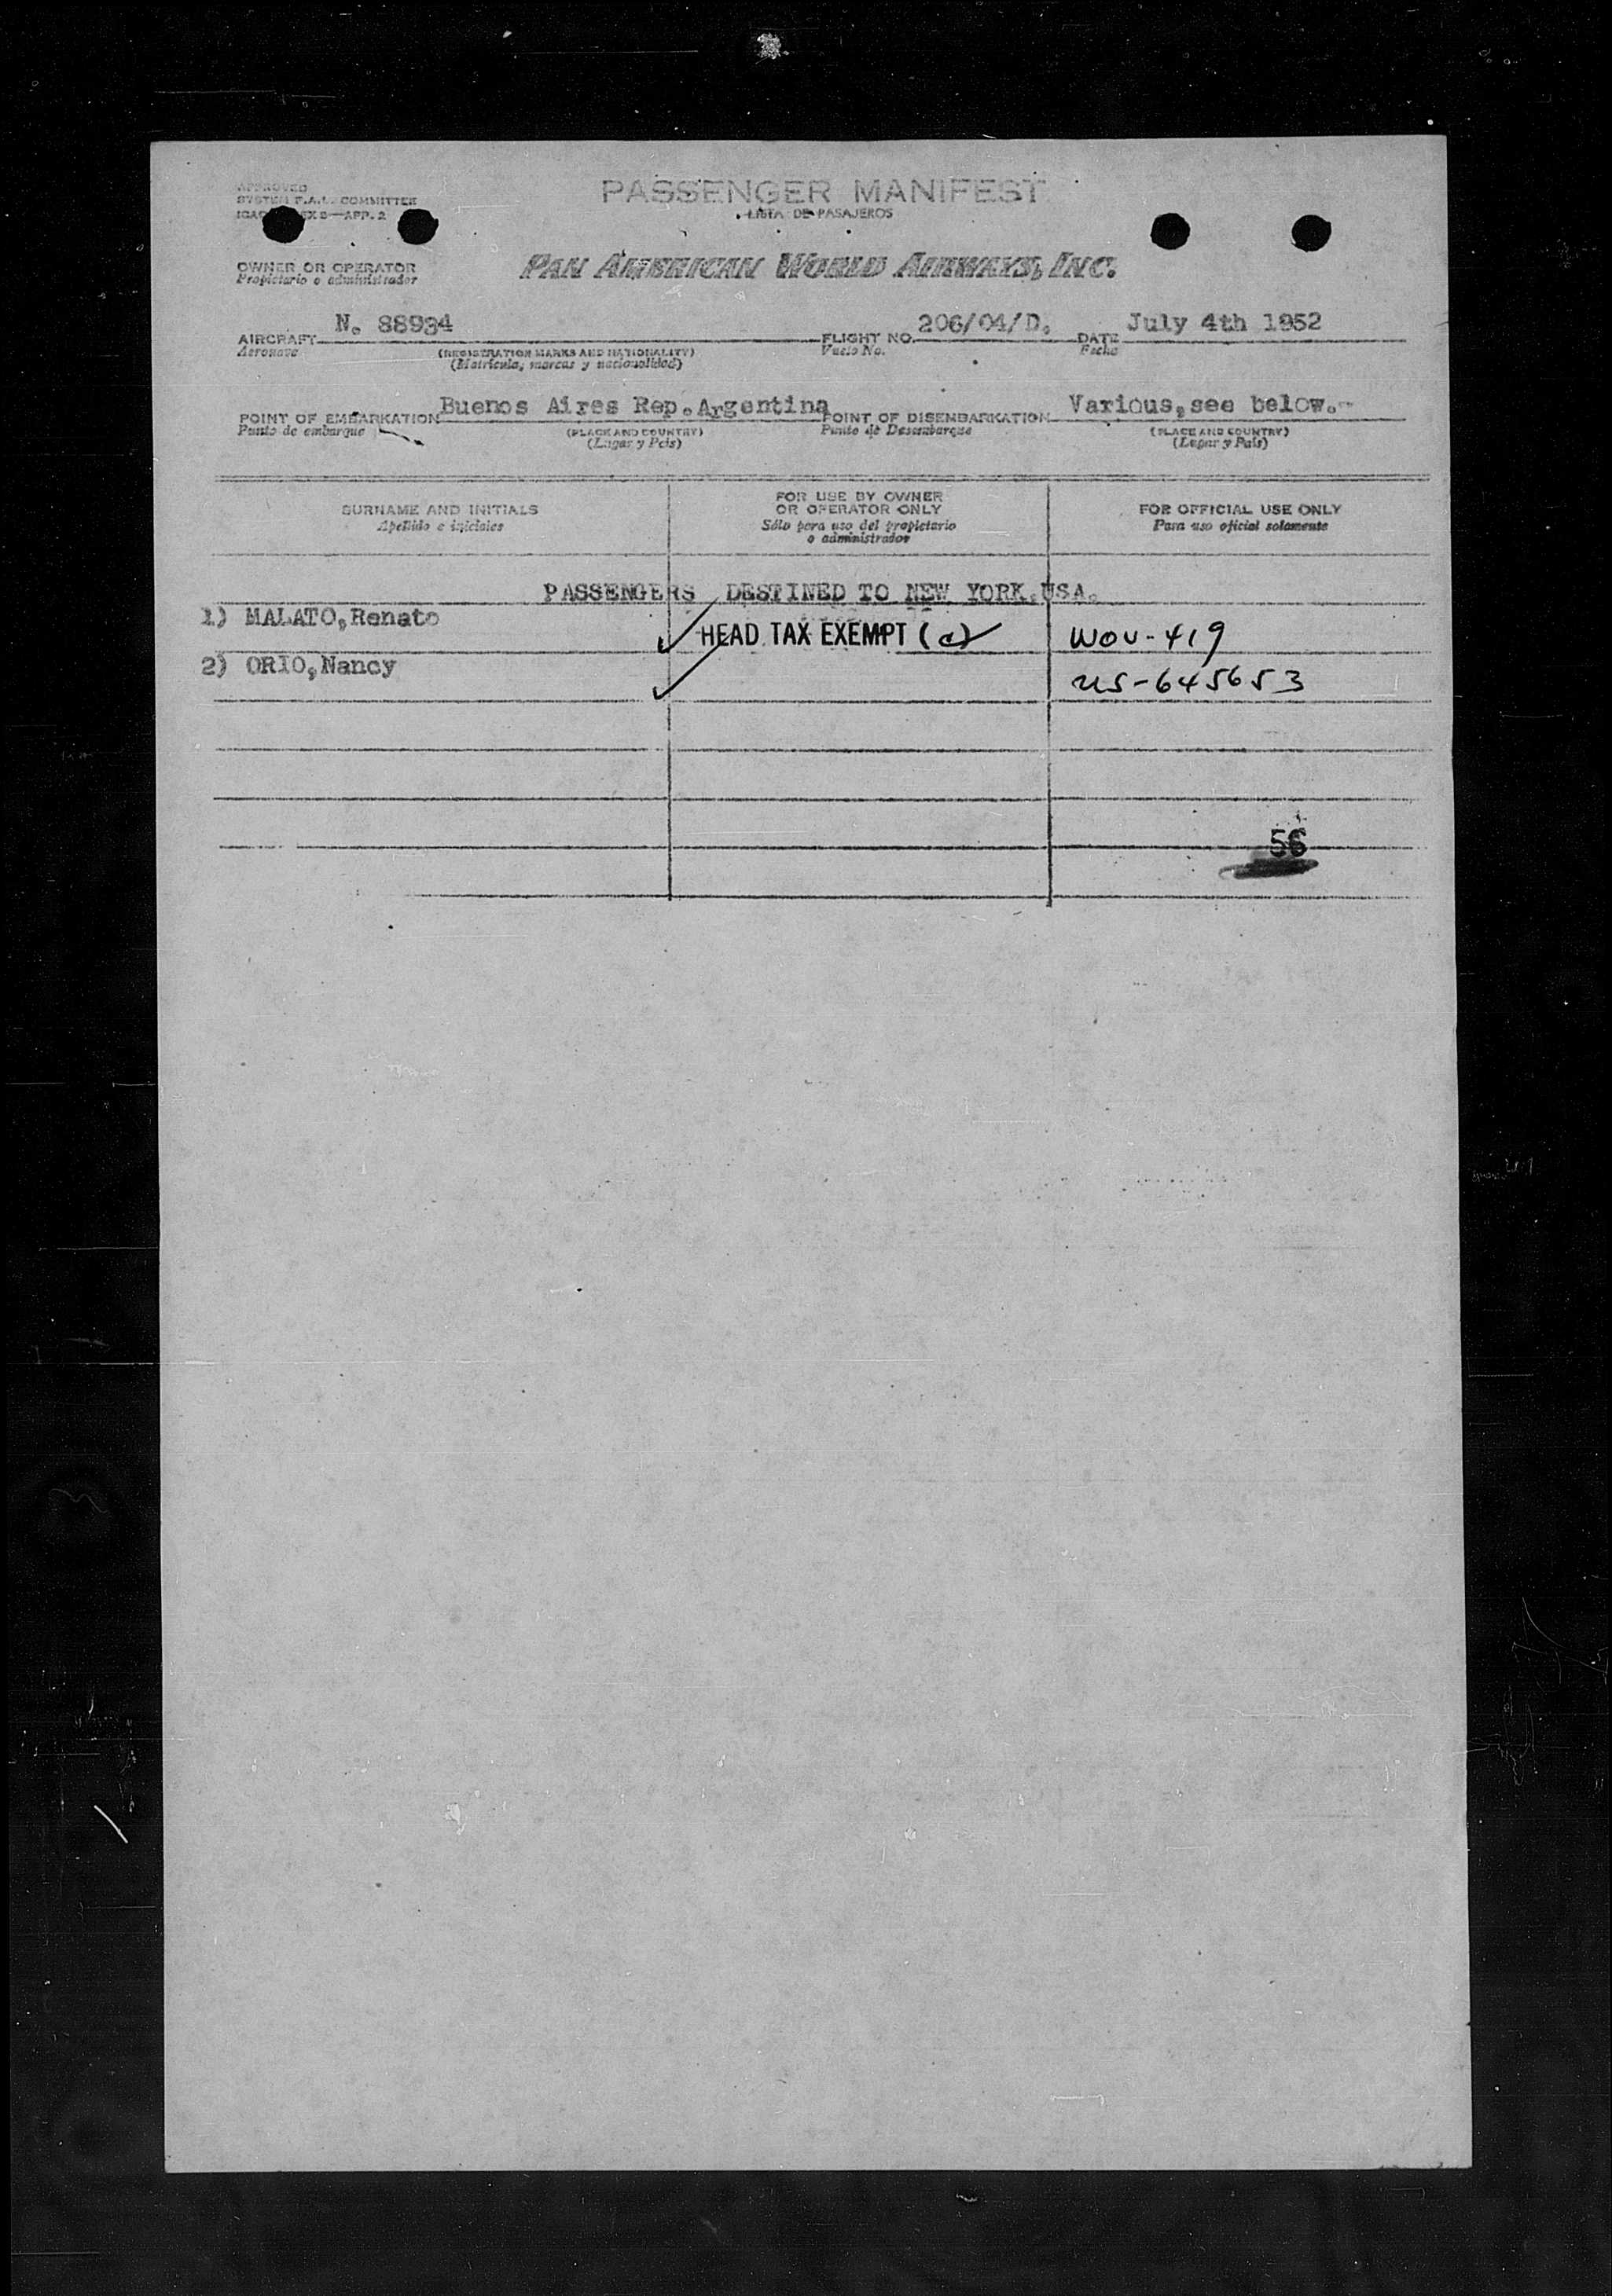 APPROVED
SYSTEM F.A.L. COMMITTEE
APP. 2
PASSENGER MANIFEST
LISTA DE PASAJEROS
OWNER OR OPERATOR
Propietario o administrador
PAN AMERICAN WORLD AIRWAYS, INC.
AIRCRAFT N. 88934
Aeronave
(REGISTRATION MARKS AND NATIONALITY)
(Matricula, marcas y nacionalidad)
FLIGHT NO. 206/04/D.
Vuelo No.
DATE July 4th 1952
Fecha
POINT OF EMBARKATION Buenos Aires Rep.Argentina
Punto de embarque
(PLACE AND COUNTRY)
(Lugar y Pais)
POINT OF DISEMBARKATION Various,see below.-
Punto de Desembarque
(PLACE AND COUNTRY)
(Lugar y País)
SURNAME AND INITIALS
Apellido e iniciales
FOR USE BY OWNER
OR OPERATOR ONLY
Sólo para uso del propietario
o administrador
FOR OFFICIAL USE ONLY
Para uso oficial solamente
PASSENGERS DESTINED TO NEW YORK.USA.
1) MALATO,Renato
HEAD TAX EXEMPT (a)
WOV-419
2) ORIO,Nancy
US-645653
56